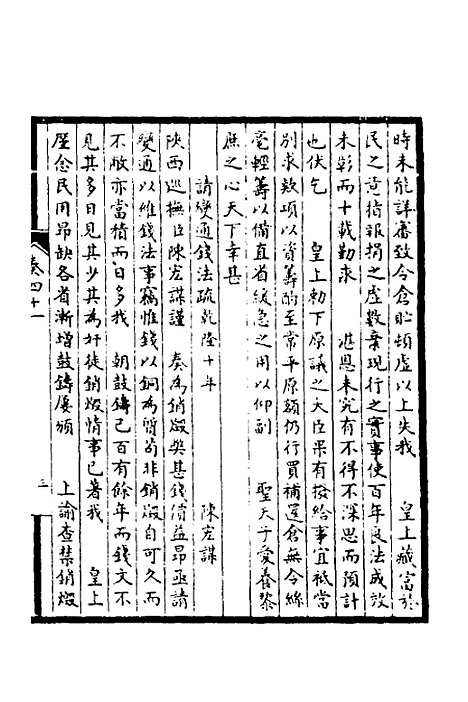 時未能詳審致今倉貯頓虛以上失我　皇上藏富於
民之意指報捐之虛數棄現行之實事使百年良法成效
未彰而十載勤求　湛恩未究有不得不深思而預計
也伏乞　皇上勅下原議之大臣果有撥給事宜祗當
別求款項以資籌酌至常平原額仍行買補還倉無令絲
毫輕籌以備直省緩急之用以仰副　聖天子愛養黎
庶之心天下幸甚
請變通錢法疏乾隆十年　陳宏謀
陝西巡撫臣陳宏謀謹　奏為銷燬獘甚錢價益昂亟請
變通以維錢法事竊惟錢以銅為質茍非銷燬自可久而
不敝亦當積而日多我　朝鼓鑄已百有餘年而錢文不
見其多日見其少其為奸徒銷燬情事已著我　皇上
厪念民用昂缺各省漸增鼓鑄屢頒　上諭查禁銷燬
卷四十一
三